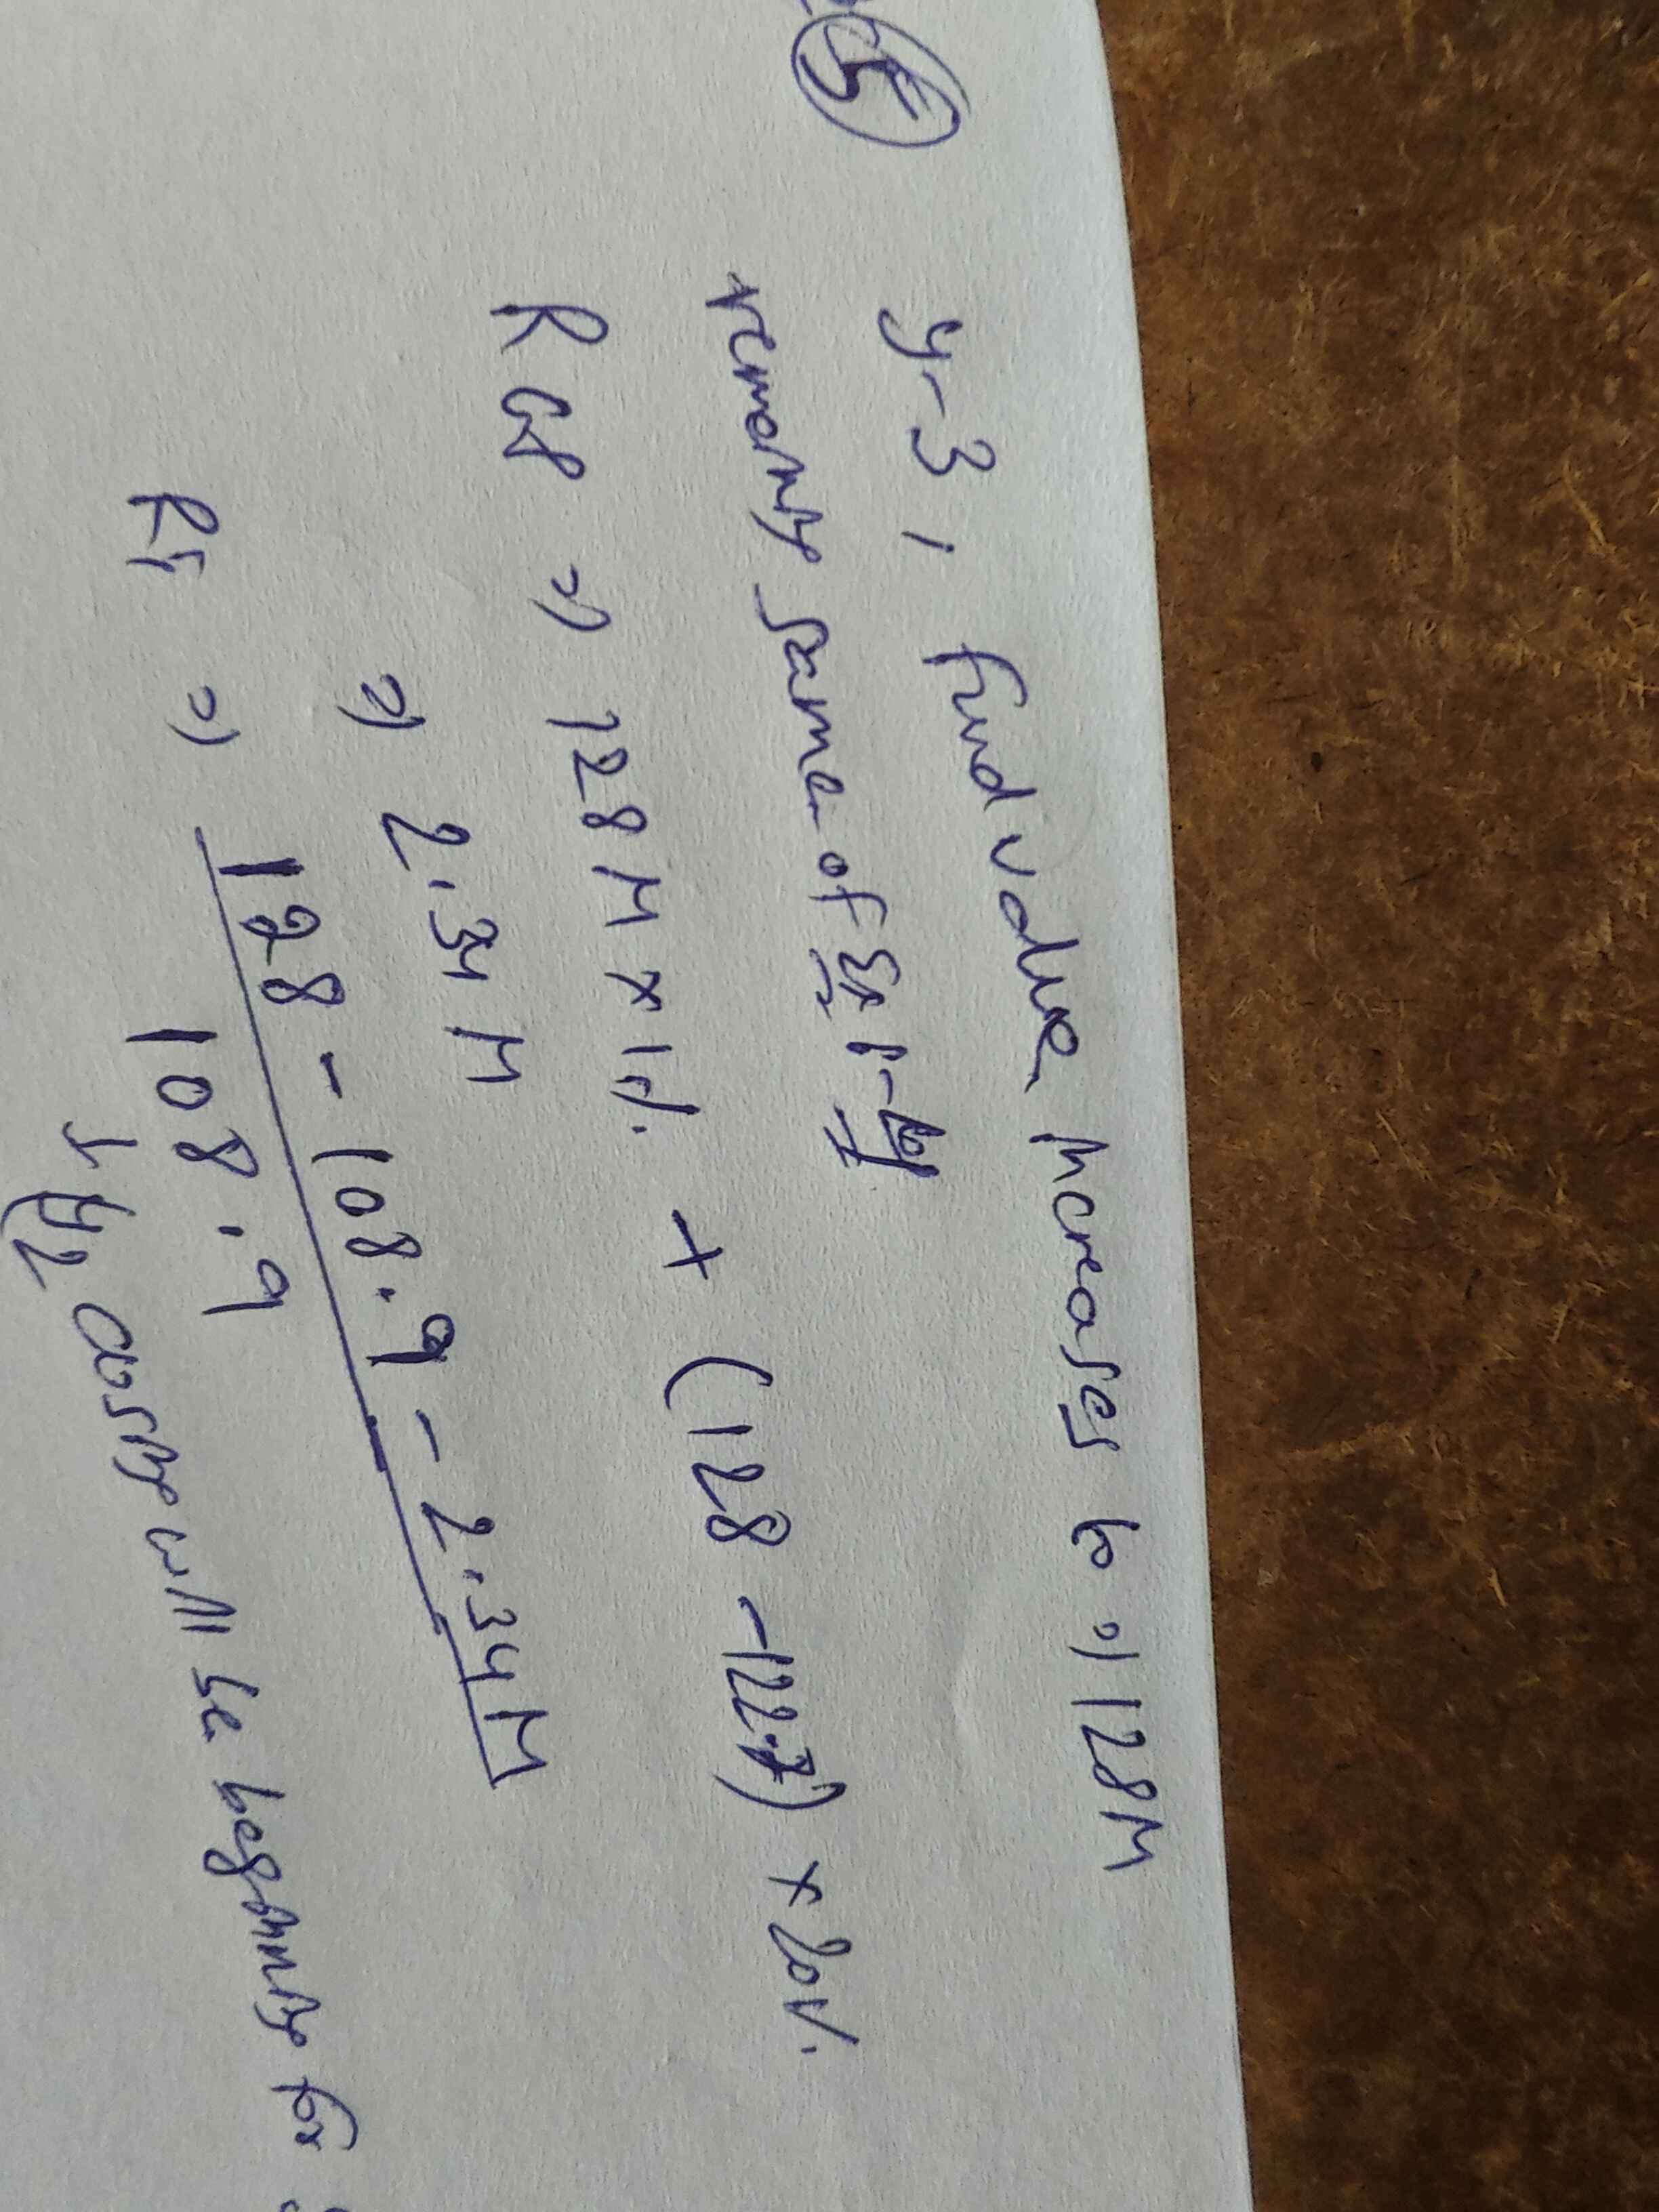 5
Y-3, Fund value increases to => 128M
remaing same of
R GB => 128M x 1% + (128 - 122.7) x 20%
=> 2.34 M
RI => 128 - 108.9 - 2.34M
108.9
Y2 Closing will be beginning for